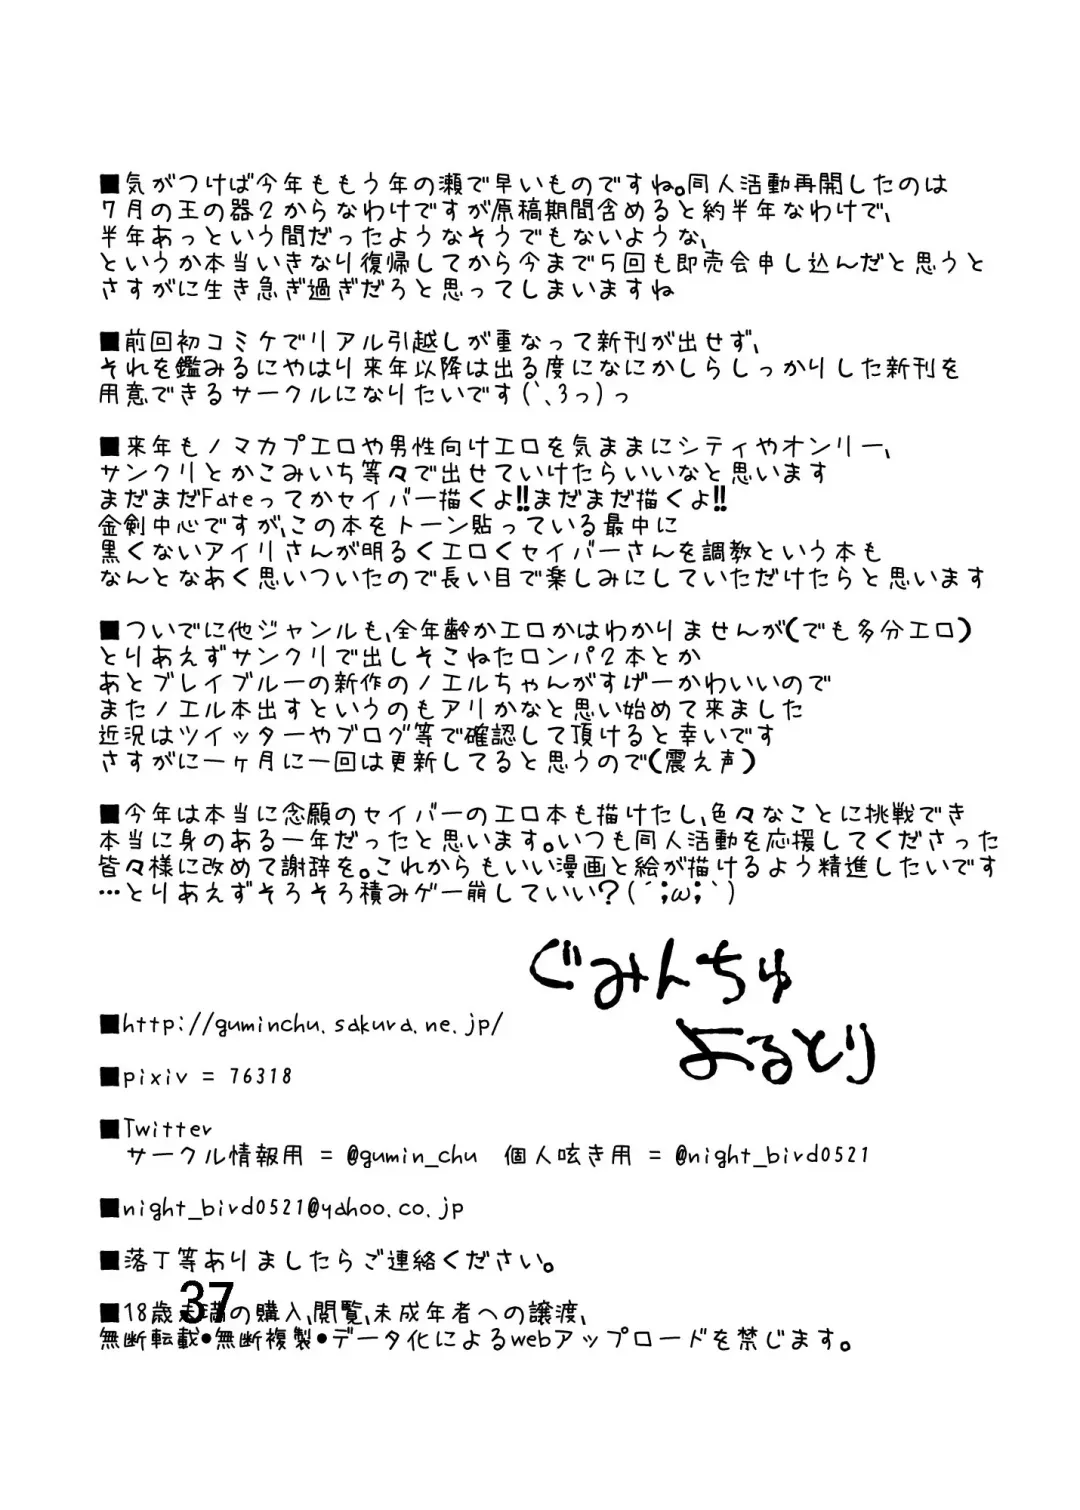 ■気がつけば今年ももう年の瀬で早いものですね。同人活動再開したのは
7月の王の器2からなわけですが原稿期間含めると約半年なわけで、
半年あっという間だったようなそうでもないような、
というか本当いきなり復帰してから今まで5回も即売会申し込んだと思うと
さすがに生き急ぎ過ぎだろと思ってしまいますね
■前回初コミケでリアル引越しが重なって新刊が出せず、
それを鑑みるにやはり来年以降は出る度になにかしらしっかりした新刊を
用意できるサークルになりたいです(`、3っ)っ
■来年もノマカプエロや男性向けエロを気ままにシティやオンリー、
サンクリとかこみいち等々で出せていけたらいいなと思います
まだまだFateってかセイバー描くよ!!まだまだ描くよ!!
金剣中心ですが、この本をトーン貼っている最中に
黒くないアイリさんが明るくエロくセイバーさんを調教という本も
なんとなあく思いついたので長い目で楽しみにしていただけたらと思います
■ついでに他ジャンルも、全年齢かエロかはわかりませんが(でも多分エロ)
とりあえずサンクリで出しそこねたロンパ2本とか
あとブレイブルーの新作のノエルちゃんがすげーかわいいので
またノエル本出すというのもアリかなと思い始めて来ました
近況はツイッターやブログ等で確認して頂けると幸いです
さすがに一ヶ月に一回は更新してると思うので(震え声)
■今年は本当に念願のセイバーのエロ本も描けたし、色々なことに挑戦でき
本当に身のある一年だったと思います。いつも同人活動を応援してくださった
皆々様に改めて謝辞を。これからもいい漫画と絵が描けるよう精進したいです
…とりあえずそろそろ積みゲー崩していい?(´;ω;`)
ぐみんちゅ
よるとり
■http://guminchu.sakura.ne.jp/
■pixiv = 76318
■Twitter
サークル情報用 = @gumin_chu 個人呟き用 = @night_bird0521
■night_bird0521@yahoo.co.jp
■落丁等ありましたらご連絡ください。
37
■18歳未満の購入、閲覧、未成年者への譲渡、
無断転載•無断複製•データ化によるwebアップロードを禁じます。